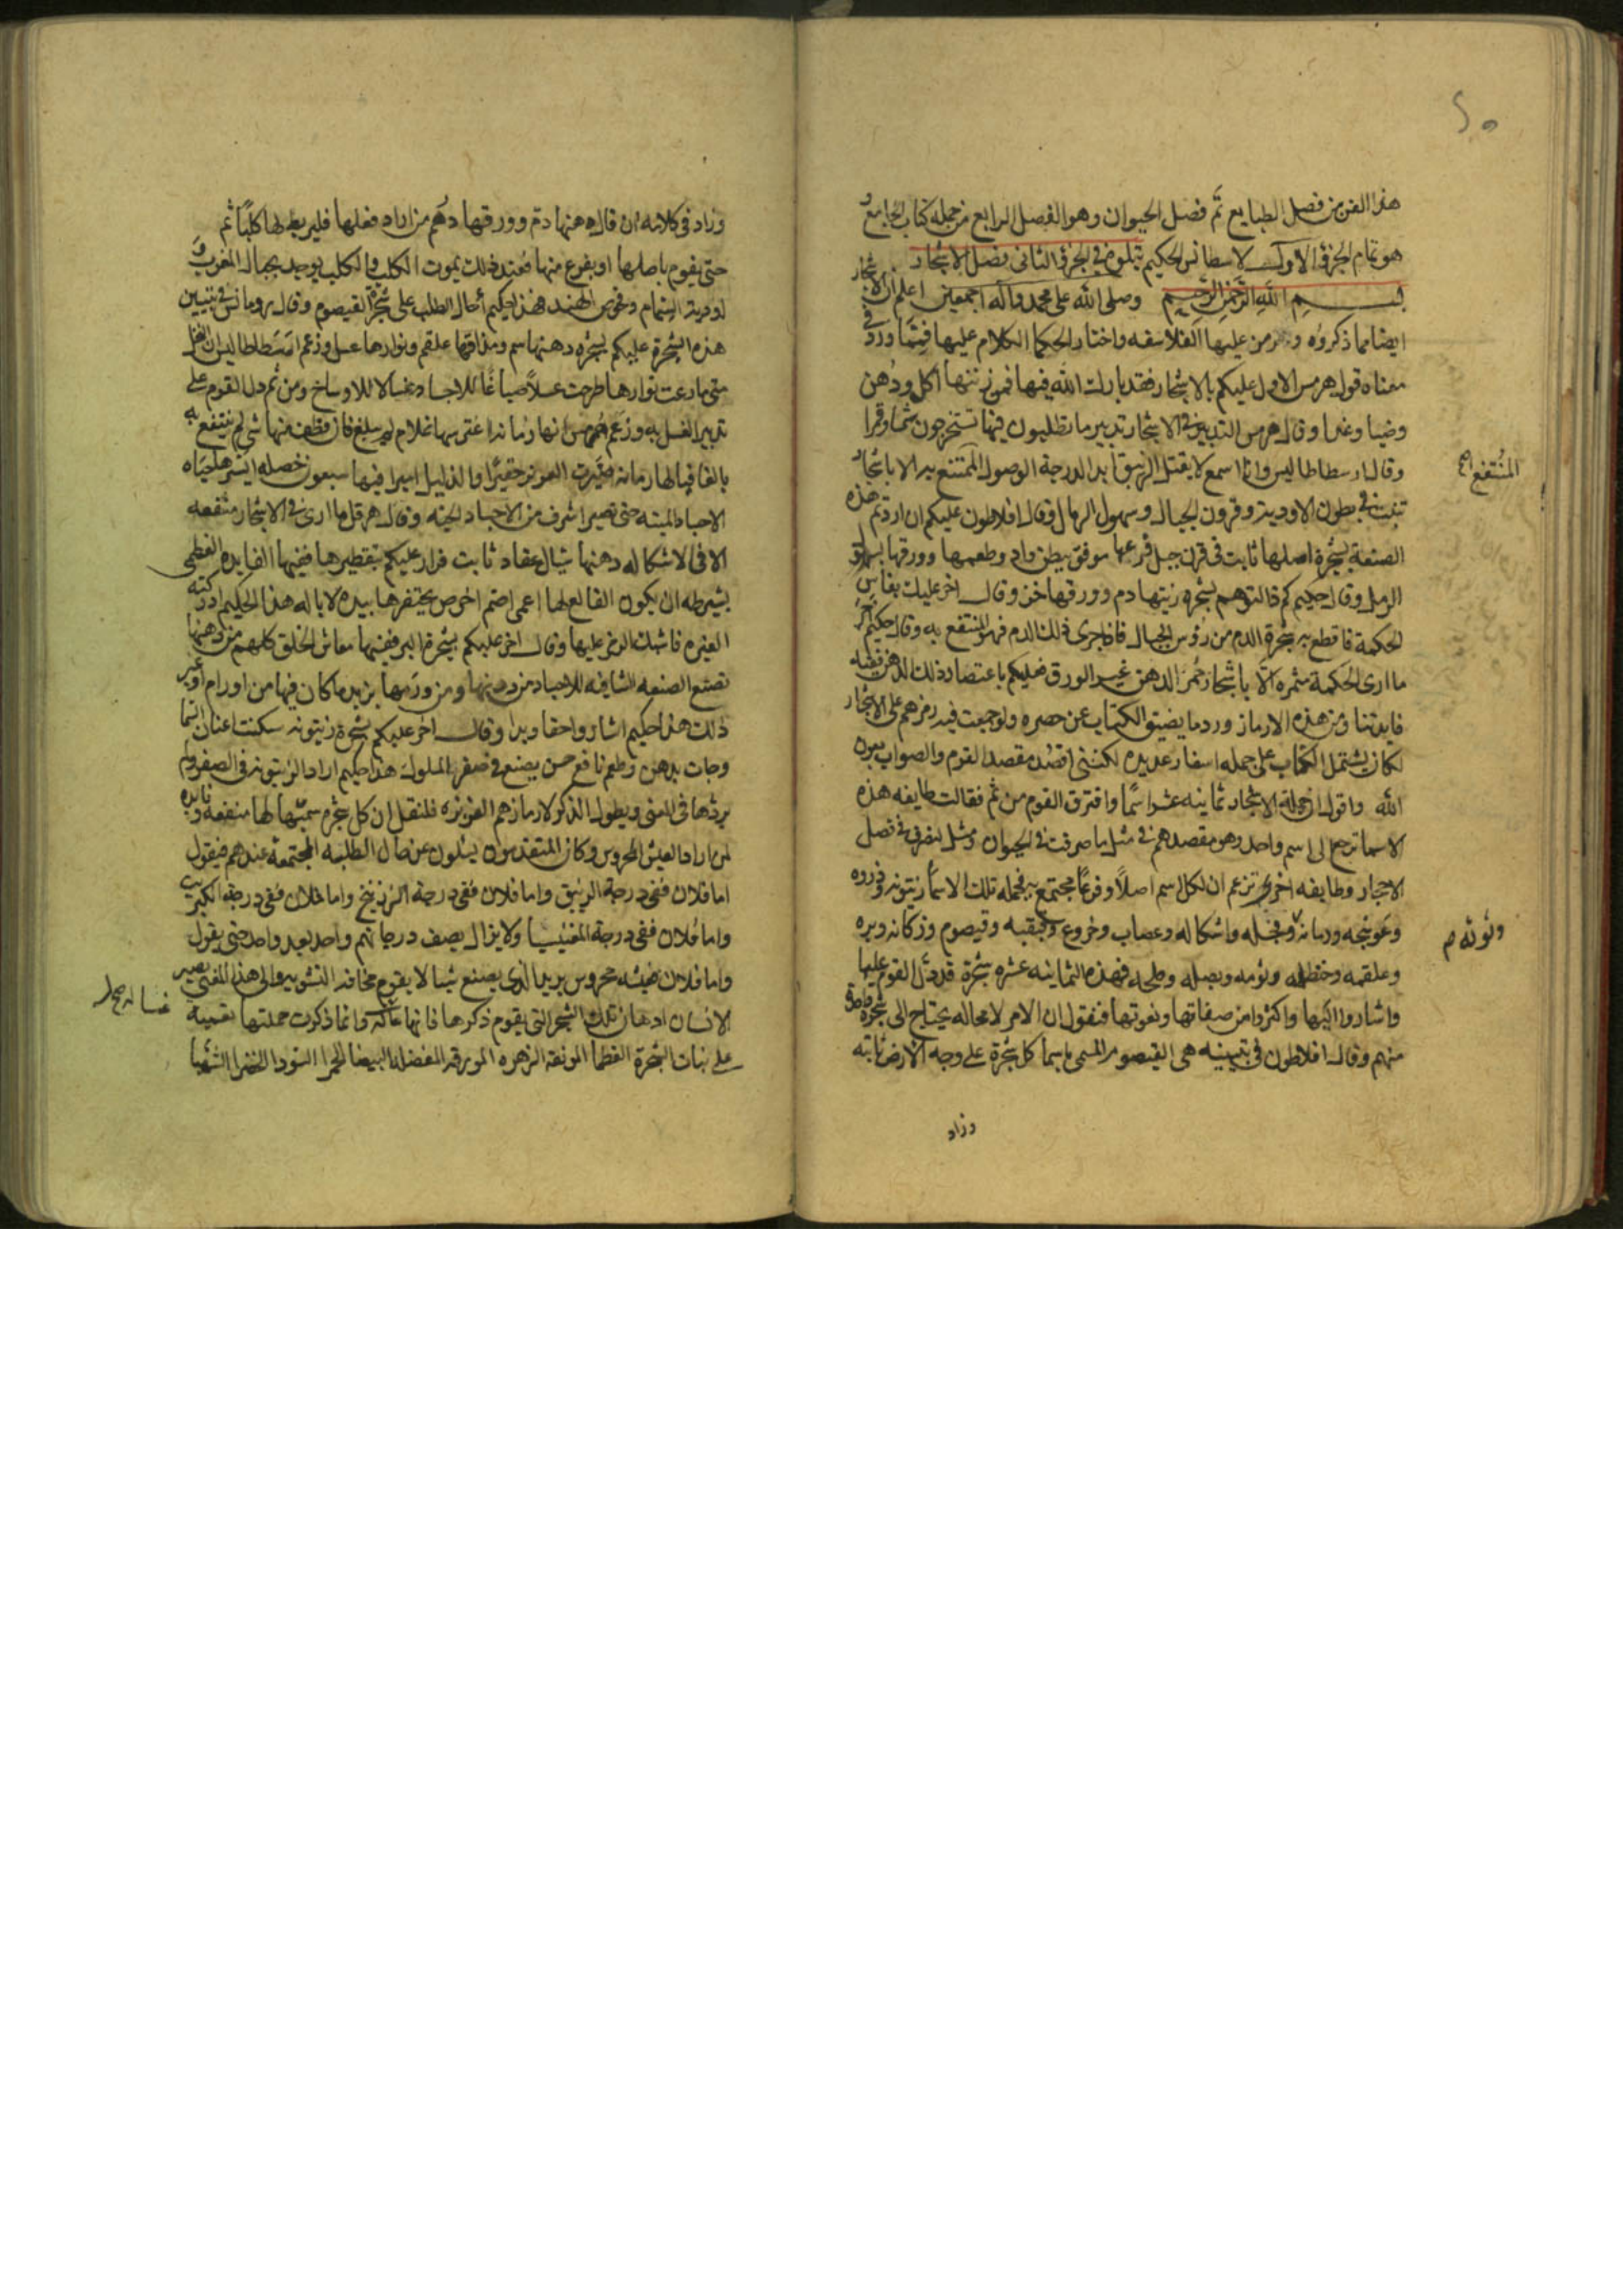 هذا الفن من فصل الطبايع تم فصل الحيوان وهو الفصل الرابع من جمله كتاب الجامع و
هو تمام الجزؤ الاول لاسطانس الحكيم يتلوه في الجزؤ الثاني فصل الاشجار
بسم الله الرحمن الرحيم وصلى الله على محمد وآله اجمعين اعلم ان الاشجار
ايضا مما ذكروه ورمز عليها الفلاسفه واختار الحكما الكلام عليها فيما ورد في
معناه قول هرمس الاول عليكم بالاشجار فقد بارك الله فيها فمن زيتها اكل ودهن
وضيا وغدا وقال هرمس التدبير في الاشجار تدبير ما تطلبون فيها تستخرجون شمسا وقمرا
وقال ارسطاطاليس وانا اسمع لا يقتل الزيبق ابدا لدرجة الوصول الممتنع به الا باشجار
تنبت في بطون الاودية وقرون الجبال وسهول الرمال وقال افلاطون عليكم ان اردتم هذه
الصنعة بشجرة اصلها ثابت في قرن جبل فرعها موفق ببطن واد وطعمها وورقها
الرمل وقال حكيم كم قالتوهم بشجره زيتها دم وورقها خز وقال اخر عليك بفاس
الحكمة فاقطع به شجرة الدم من رؤس الجبال فاذا جرى ذلك الدم فهو المنتفع به وقال حكيم اخر
ما ارى الحكمة مثمره الا باشجار حمر الدهن غبر الورق فعليكم باعتصار ذلك الدهن ففيه
فايدتنا ومن هذه الارماز ورد ما يضيق الكتاب عن حصره ولو جمعت فيه رمزهم على الاشجار
لكان يشتمل الكتاب على جمله اسفار عديده لكنني اقصد مقصد القوم والصواب بعون
الله واقول ان جملة الاشجار ثمانيه عشر اسما وافترق القوم من ثم فقالت طايفه هذه
الاسما ترجع الى اسم واحد وهو مقصدهم في مثل ما صرفت في الحيوان ومثل يتصرف في فصل
الاحجار وطايفه اخرى تزعم ان لكل اسم اصلا وفرعا مجتمع به فجمله تلك الاسما زيتونه
وعوسجه ورمانه ونخله واشكاله وعصاب وخروع وقيصوم
وعلقمه وحنظله وثومه وبصله فهذه الثمانيه عشره شجرة قد دل القوم عليها
واشاروا اليها واكثروا من صفاتها ونعوتها فنقول ان الامر لا محاله يحتاج الى شجره
منهم وقال افلاطون في تبيينه هي القيصوم المسمى باسما كل شجرة على وجه الارض نابته
وزاد
المنتفع صح
وزاد في كلامه ان قال دهنها دم وورقها دهم من اراد فعلها فليربط لها كلبا ثم
حتى يقوم باصلها او بفرع منها فعند ذلك يموت الكلب والكلب يوجد بجبال المغرب و
اودية الشام وتخوم الهند هذا حكيم أحال الطلب على شجرة القيصوم وقال رومانس في تبيين
هذه الشجرة عليكم بشجره دهنها سم ومذاقها علقم ونوارها عسل وزعم ارسطاطاليس ان النحل
متى ما رعت نوارها طرحت عسلا صباغا للاجساد وغسالا للاوساخ ومن ثم دل القوم على
تدبير العسل به وزعم هرمس انها رمانه اعترسها غلام لم يبلغ فان قطف منها شي لم ينتفع به
يالها رمانه صيرت العزيز حقيرا والذليل اميرا فيها سبعون خصله ايسرها حياه
الاجساد الميته حتى تصير اشرف من الاجساد الحيه وقال هرقل ما ارى في الاشجار منفعه
الا في الاشكاله دهنها شيال عقاد ثابت فرار عليكم بتقطيرها ففيها الفايده العظمى
بشرطه ان يكون القالع لها اعمى اصم اخرص يحتفرها بيده لا باله هذا الحكيم ادركته
الغيره فاشتد الرمز عليها وقال اخر عليكم بشجرة البر ففيها معاش الخلق كلهم من دهنها
تصنع الصنعه الشافيه للاجساد من دهنها ومن ورقها يزيد ما كان فيها من اورام او غير
ذلك هذا حكيم اشار واحقا وبرا وقال اخر عليكم بشجرة زيتونه سكنت عنان السما
وجات بدهن وطعم نافع حسن يصنع في صفر الملوك هذا حكيم اراد الزيتونه في الصفر ولم
يردها في المعنى ويطول الذكر لارمازهم العزيزه فلنقل ان كل شجره سميتها لها منفعه وفايده
لمن اراد العيش المحروس وكان المتقدمون يسئلون عن حال الطلبه المجتمعة عندهم فيقول
اما فلان ففي درجة الزيبق واما فلان ففي درجة الزرنيخ واما فلان ففي درجة الكبريت
واما فلان ففي درجة المغنيسيا ولا يزال يصف درجاتهم واحد بعد واحد حتى يقول
واما فلان فهيئه محروس يريد الذي يصنع شيا لا يقوم مخافة التشويه والى هذا المعنى يصير
الانسان ادهان تلك الشجر التي يقوم ذكرها فانها وانما ذكرت جملتها تعمية
على بنات الشجرة العظما المونقة الزهره المورقه المفضله البيضا الحمرا السودا الخضرا الشهبا
غساله صح